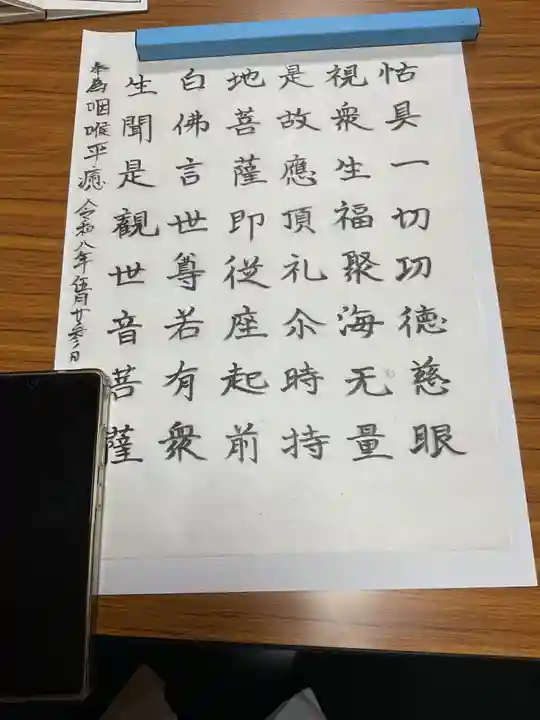 怙具一切功徳慈眼
視衆生福聚海无量
是故應頂礼尒時持
地菩薩即従座起前
白佛言世尊若有衆
生聞是觀世音菩薩
奉為咽喉平癒 令和八年伍月廿参日